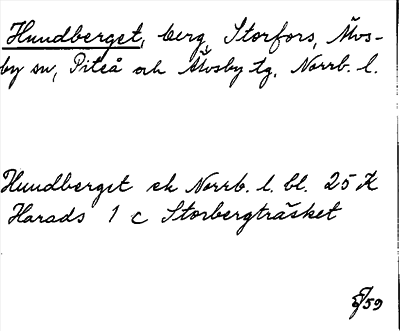 Hundberget, berg Storfors, Älvs-
by sn, Piteå och Älvsby tg. Norrb. l.
Hundberget ek Norrb. l. bl. 25 K
Harads 1 c Storbergträsket
/59